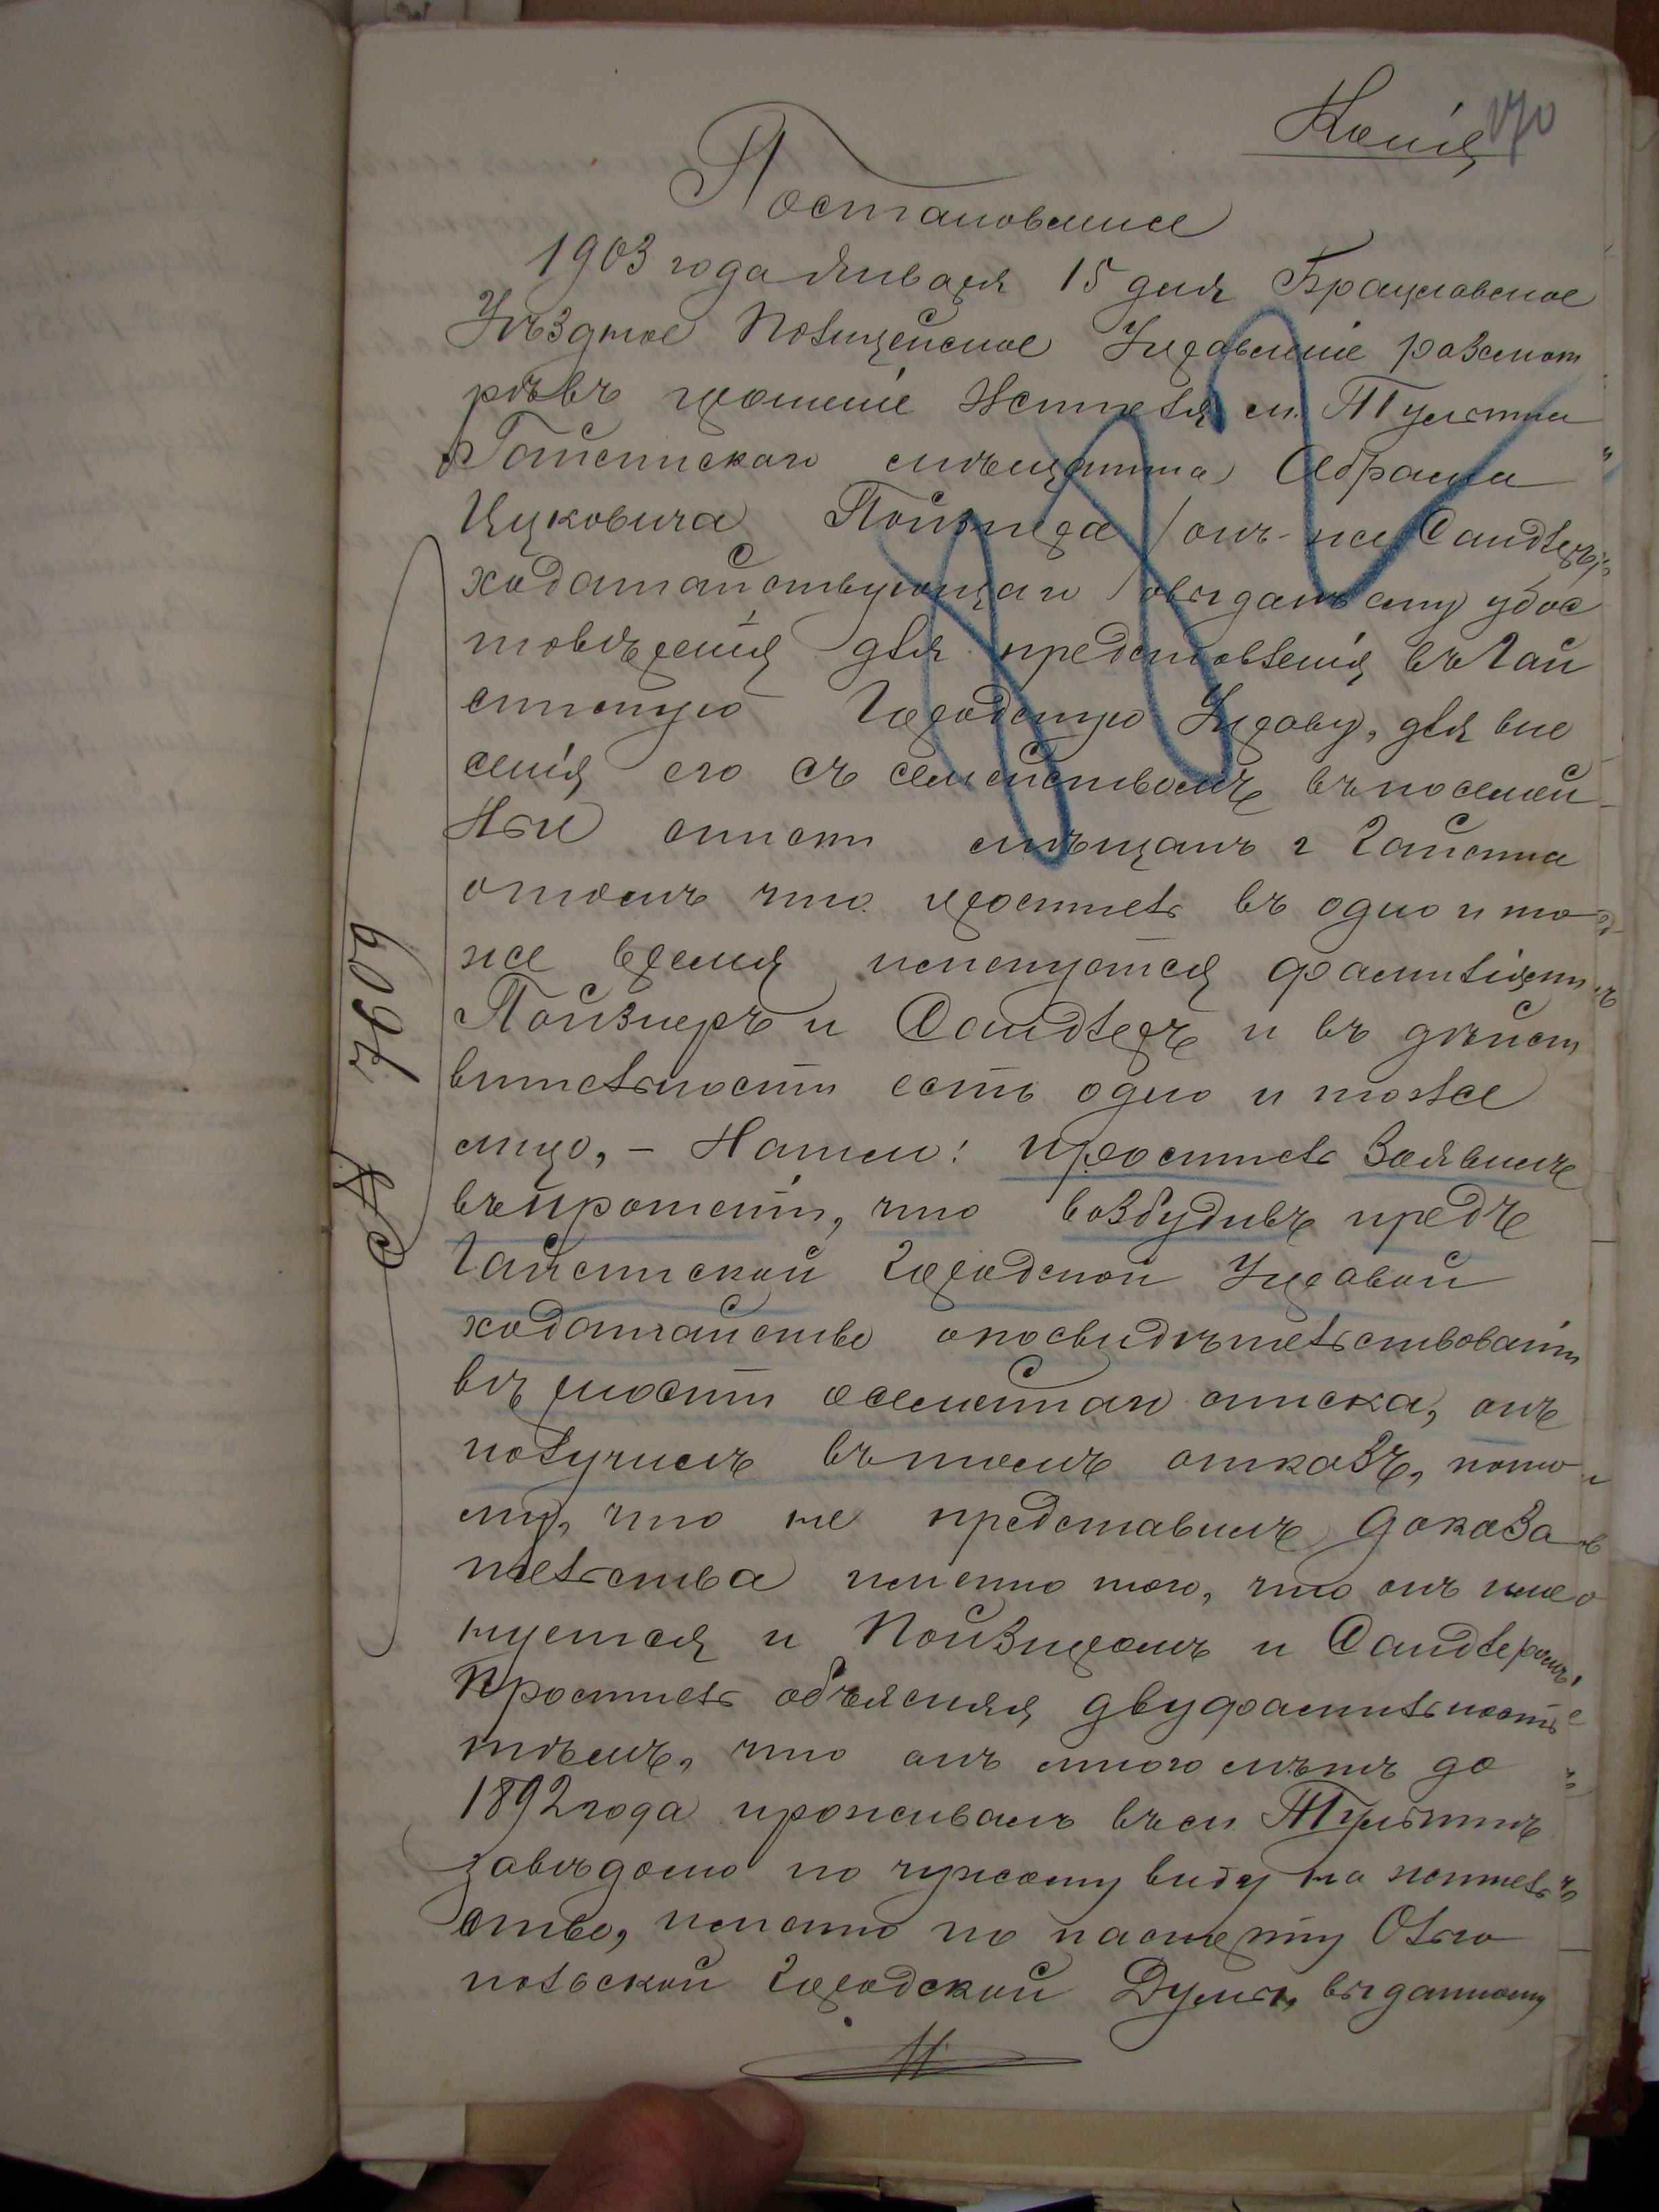 Копія 170
Постановленіе
1903 года Января 15 дня Брацлавское
Уѣздное Полицейское Управленіе разсмот
рѣвъ прошеніе жителя м. Тульчина
Гайсинскаго мѣщанина Абрама
Ицковича Пойзнера /онъ-же Сандлеръ/
ходатайствующаго о выдачѣ ему удос
товѣренія для представленія въ Гай
синскую Городскую Управу, для вне
сенія его съ семействомъ въ посемей
ный списки мѣщанъ г Гайсина
о томъ что проситель въ одно и то
же время именуется фамиліями
Пойзнеръ и Сандлеръ и въ дѣйст
вительности есть одно и тоже
лицо, – Нашли: проситель заявилъ
въ прошеніи, что возбудивъ предъ
Гайсинской Городской Управой
ходатайство о посвидѣтельствованіи
вѣрности посемейнаго списка, онъ
получилъ въ томъ отказъ, пото
му, что не представилъ доказа
тельства именно того, что онъ име
нуется и Пойзнеромъ и Сандлеромъ,
Проситель объясняя двуфамильность
тѣмъ, что онъ много лѣтъ до
1892 года проживалъ въ м Тульчинѣ
завѣдомо по чужому виду на житель
ство, именно по паспорту Ольго
польской Городской Думы, выданному
№ 6097